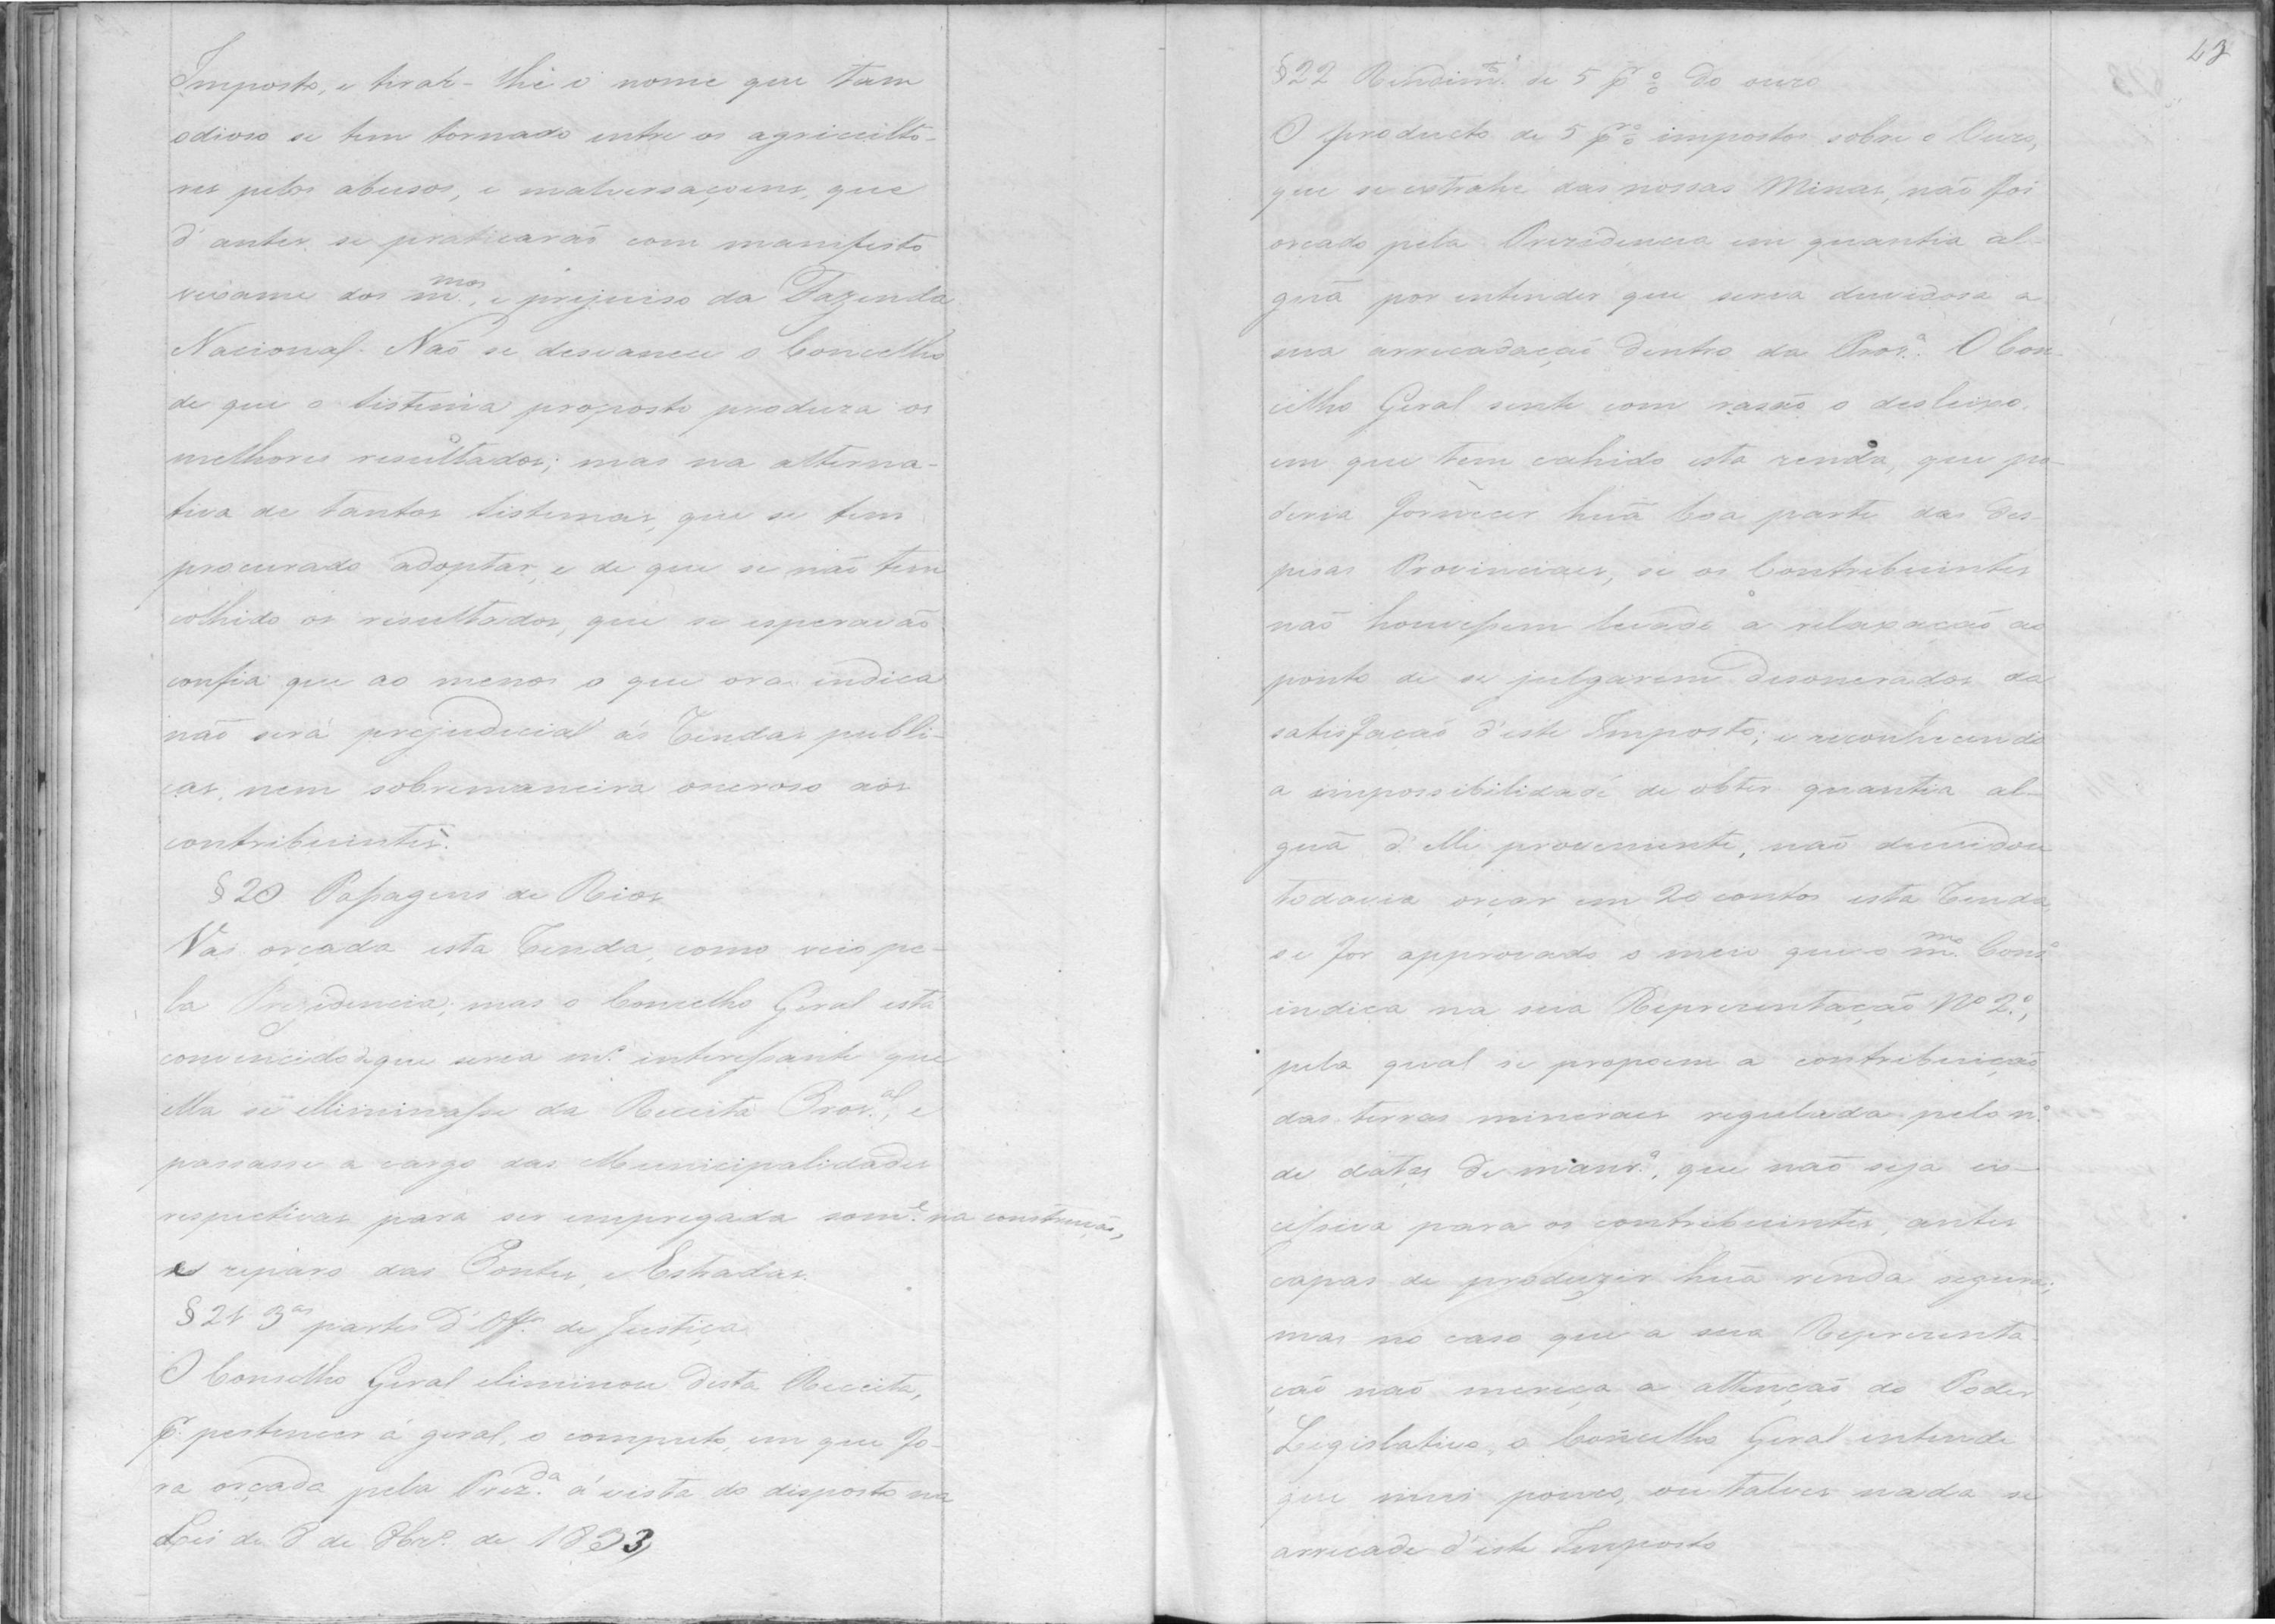 Imposto, e tirar-lhe o nome que tam
odioso se tem tornado entre os agriculto-
res pelos abusos, e malversaçoens, que
d'antes se praticarão com manifesto
vexame dos m.mos, e prejuiso da Fazenda
Nacional. Não se desvanece o Concelho
de que o sistema proposto produza os
melhores resultados; mas na alterna-
tiva de tantos sistemas, que se tem
procurado adoptar, e de que se não tem
colhido os resultados, que se esperavão
confia que ao menos o que ora indica
não será prejudicial ás Rendas publi-
cas, nem sobremaneira oneroso aos
contribuintes.
§ 20 Paſsagens de Rios
Vai orçada esta Renda, como veio pe-
la Prezidencia; mas o Concelho Geral está
convencido de que seria m.to intereſsante que
ella se elliminaſse da Receita Prov.al, e
passasse a cargo das Municipalidades
respectivas para ser empregada som.e na construcção,
e reparo das Pontes, e Estradas.
§ 21 3as partes d'Off.os de Justiça
O Conselho Geral eliminou desta Receita,
p.r pertencer á geral, o computo, em que fo-
ra orçada pela Prez.da á vista do disposto na
Lei de 8 de 8br.o de 1833,
42
§ 22 Rendim.to de 5 p.r % do ouro
O producto de 5 p.r % impostos sobre o Ouro,
que se extrahe das nossas Minas, não foi
orçado pela Prezidencia em quantia al-
guã por entender que seria duvidosa a
sua arrecadação dentro da Prov.a O Con-
celho Geral sente com rasão o desleixo,
em que tem cahido esta renda, que po-
deria fornecer huã boa parte das des-
pesas Provinciaes, se os Contribuintes
não houveſsem levado a relaxação ao
ponto de se julgarem desonerados da
satisfação d'este Imposto; e reconhecendo
a impossibilidade de obter quantia al-
guã d'elle proveniente, não duvidou
todavia orçar em 20 contos esta Renda,
se for approvado o meio que o m.mo Cons.o
indica na sua Representação No 2.o,
pela qual se propoem a contribuição
das terras mineraes regulada pelo n.o
de datas de manr.a, que não seja ex-
ceſsiva para os contribuintes, antes
capas de produzir huã renda segura;
mas no caso que a sua Representa-
ção não mereça a attenção do Poder
Legislativo, o Concelho Geral entende
que mui pouco, ou talves nada se
arrecade d'este Imposto